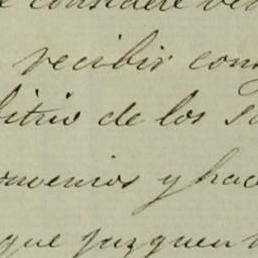 e considere ve
recibir con
bitrio de los s
onvenios y hac
que juzguen